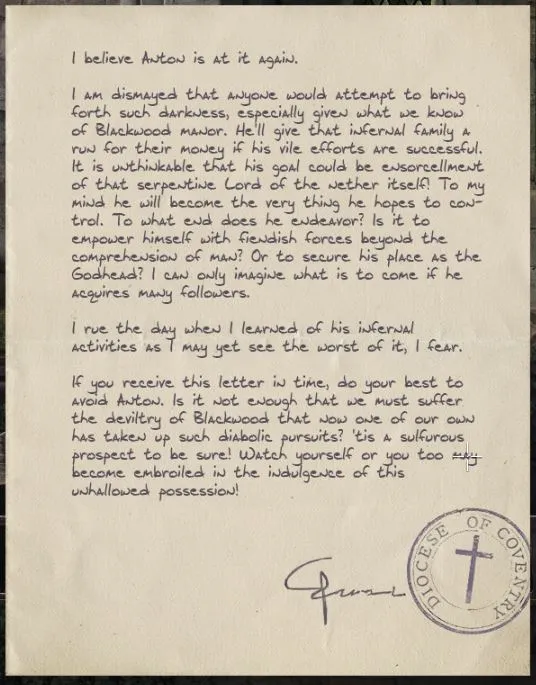 I believe Anton is at it again.
I am dismayed that anyone would attempt to bring
forth such darkness, especially given what we know
of Blackwood manor. He'll give that infernal family a
run for their money if his vile efforts are successful.
It is unthinkable that his goal could be ensorcellment
of that serpentine Lord of the nether itself! To my
mind he will become the very thing he hopes to con-
trol. To what end does he endeavor? Is it to
empower himself with fiendish forces beyond the
comprehension of man? Or to secure his place as the
Godhead? I can only imagine what is to come if he
acquires many followers.
I rue the day when I learned of his infernal
activities as I may yet see the worst of it, I fear.
If you receive this letter in time, do your best to
avoid Anton. Is it not enough that we must suffer
the deviltry of Blackwood that now one of our own
has taken up such diabolic pursuits? 'tis a sulfurous
prospect to be sure! Watch yourself or you too may
become embroiled in the indulgence of this
unhallowed possession!
DIOCESE OF COVENTRY